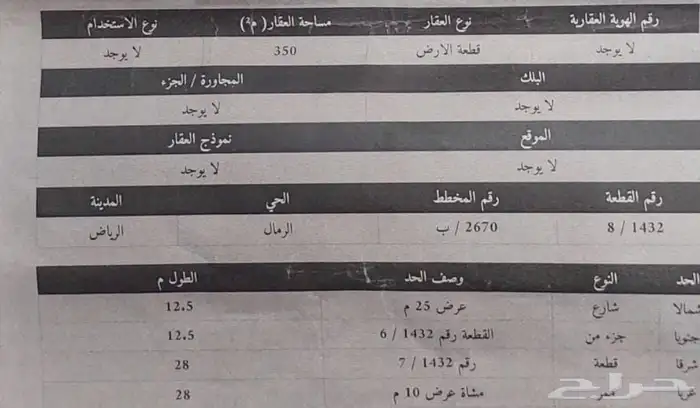 رقم الهوية العقارية نوع العقار مساحة العقار( م²) نوع الاستخدام
لا يوجد قطعة الارض 350 لا يوجد
البلك المجاورة / الجزء
لا يوجد لا يوجد
الموقع نموذج العقار
لا يوجد لا يوجد
رقم القطعة رقم المخطط الحي المدينة
1432 / 8 2670 / ب الرمال الرياض
الحد النوع وصف الحد الطول م
شمالا شارع عرض 25 م 12.5
جنوبا جزء من القطعة رقم 1432 / 6 12.5
شرقا قطعة رقم 1432 / 7 28
غربا ممر مشاة عرض 10 م 28
حراج